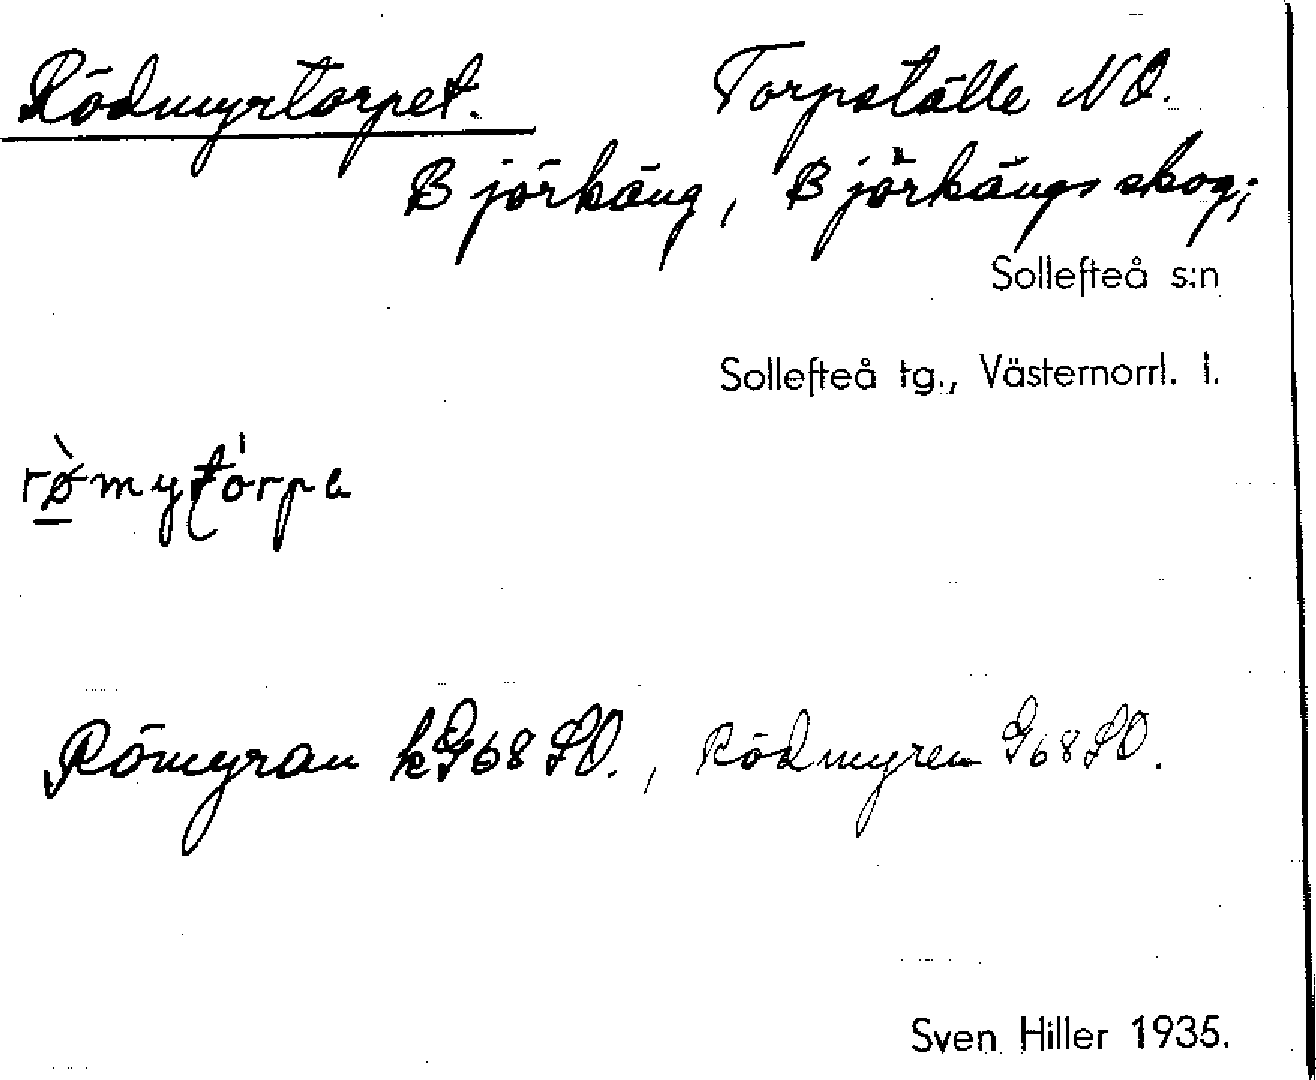 Rödmyrtorpet. Torpställe NO.
Björkäng, Björkängsskog;
Sollefteå s:n
Sollefteå tg., Västernorrl. l.
rø̀mytórpa
Römyran kG68SO., Rödmyren G68SO.
Sven Hiller 1935.